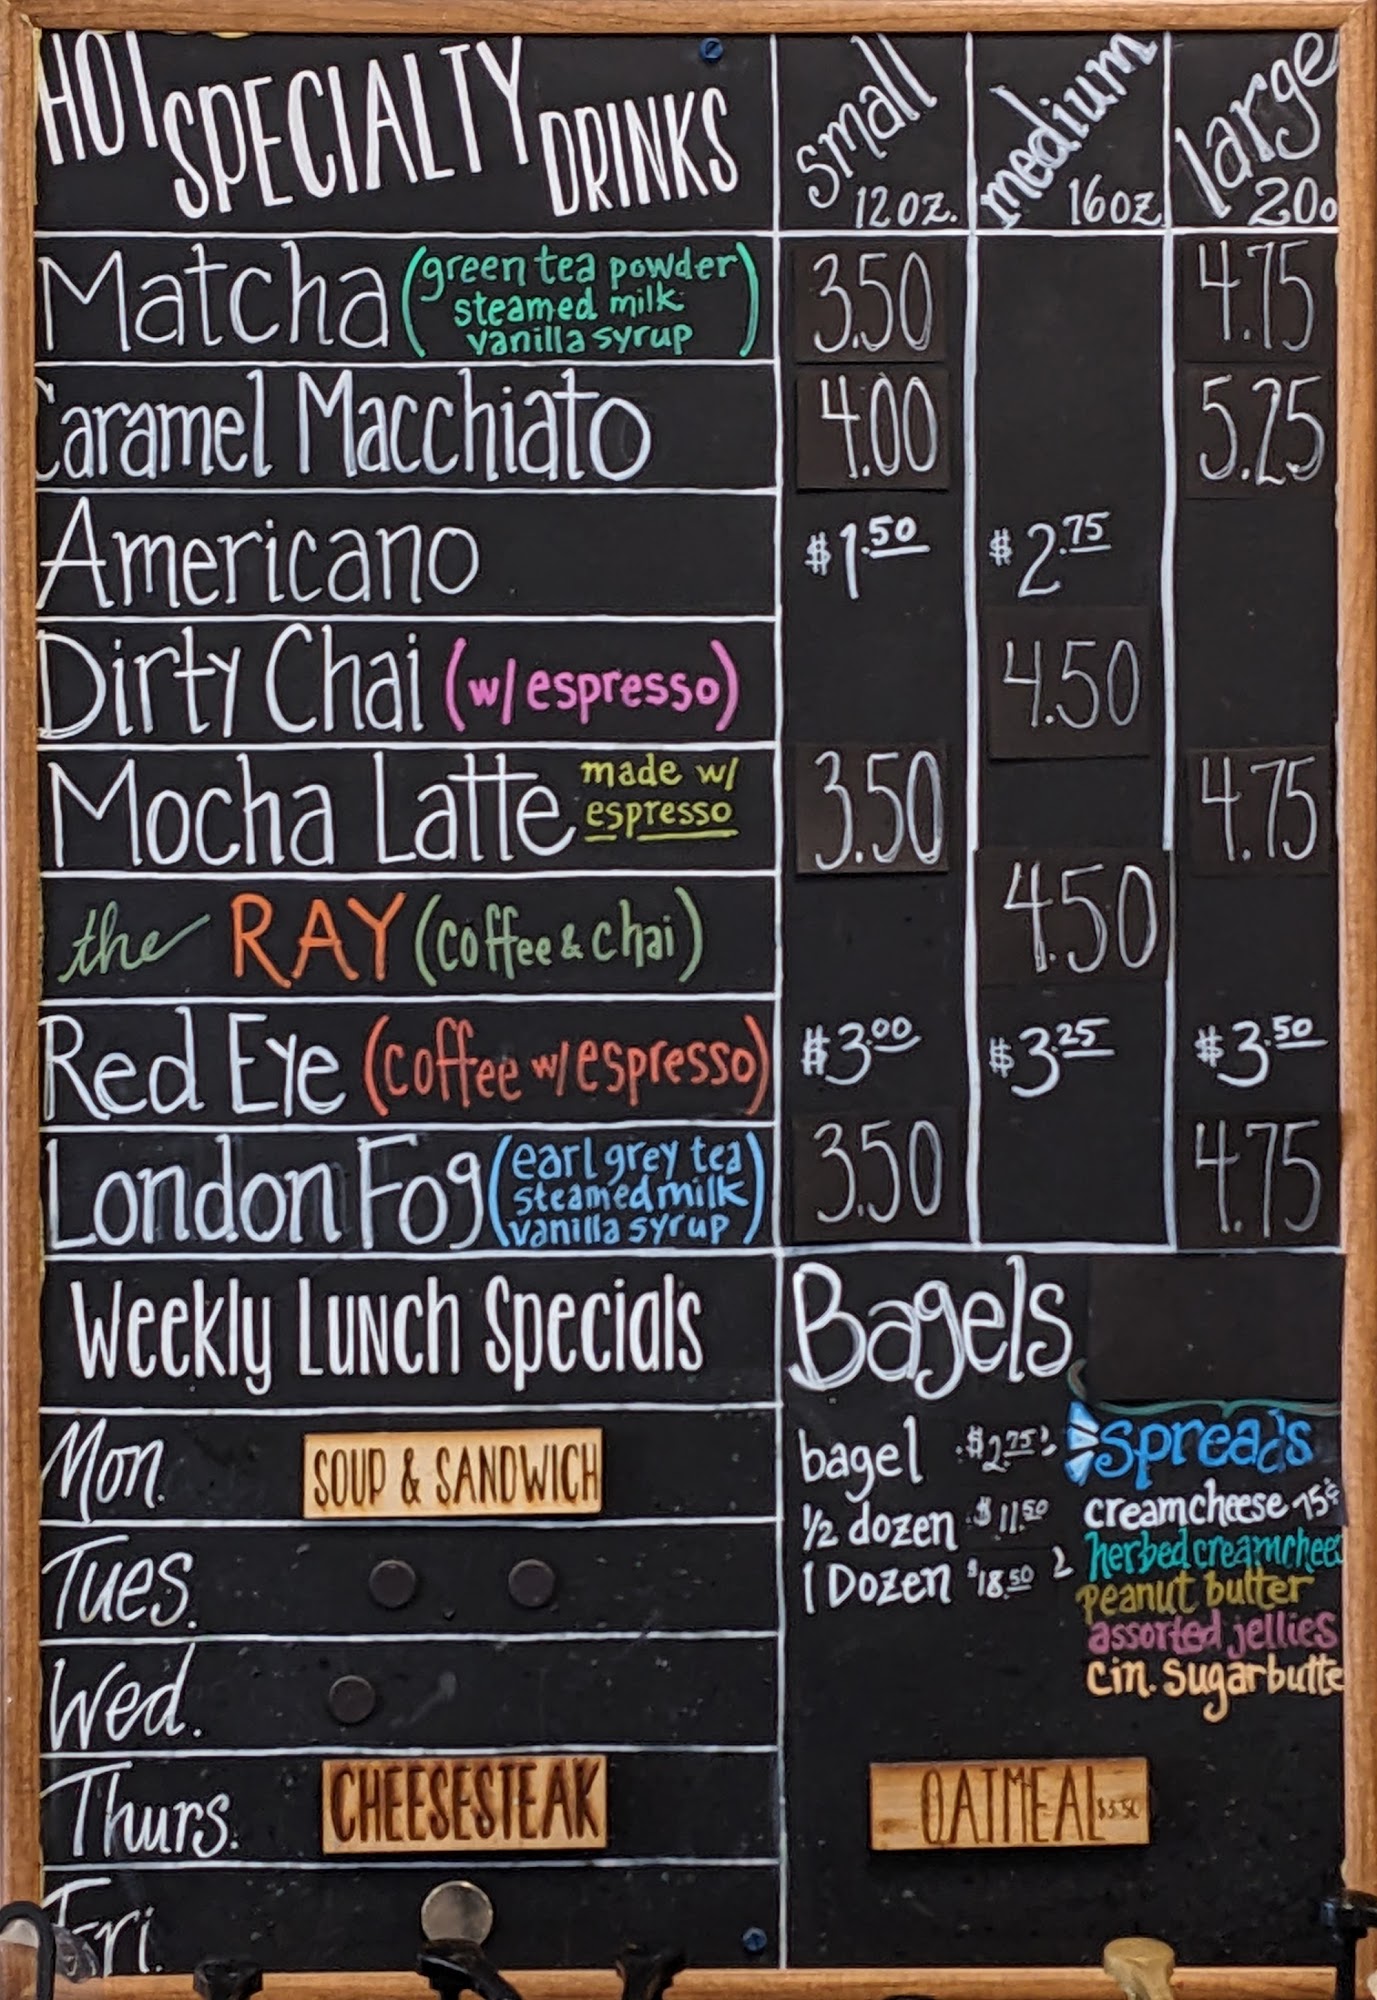 HOT SPECIALTY DRINKS
small 12oz. medium 16oz. large 20o
Matcha (green tea powder 3.50 4.75
steamed milk
vanilla syrup)
Caramel Macchiato 4.00 5.25
Americano $1.50 $2.75
Dirty Chai (w/ espresso) 4.50
Mocha Latte made w/ 3.50 4.75
espresso
the RAY (coffee & chai) 4.50
Red Eye (coffee w/ espresso) $3.00 $3.25 $3.50
London Fog (earl grey tea 3.50 4.75
steamed milk
vanilla syrup)
Weekly Lunch Specials
Mon. SOUP & SANDWICH
Tues.
Wed.
Thurs. CHEESESTEAK
Fri.
Bagels
bagel $2.75
1/2 dozen $11.50
1 Dozen $18.50
spreads
creamcheese 75¢
herbed creamchees
peanut butter
assorted jellies
cin. sugar butte
OATMEAL $3.50